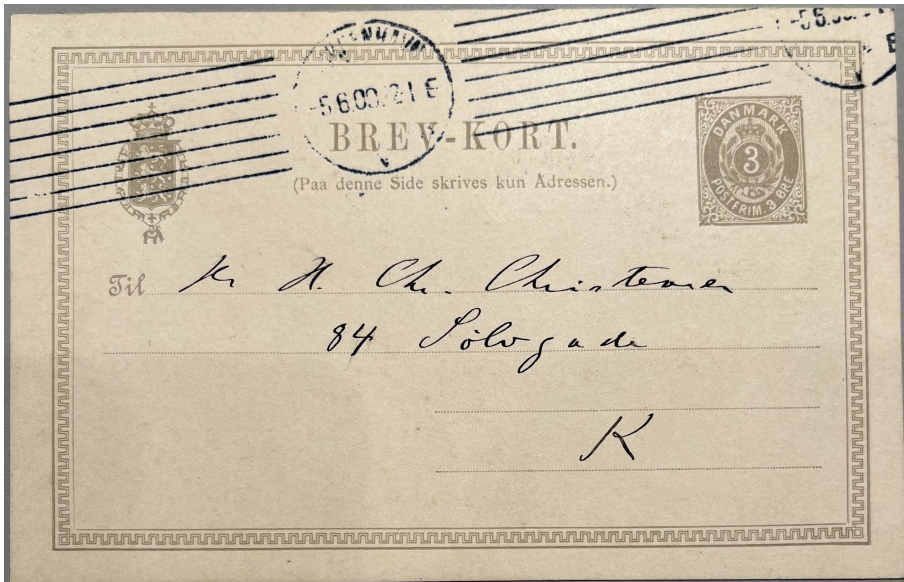 KJØBENHAVN
5.6.00. 2-1 E
BREV-KORT.
(Paa denne Side skrives kun Adressen.)
DANMARK
3
POSTFRIM. 3 ØRE
Til Hr H. Chr. Christensen
84 Sølvgade
K